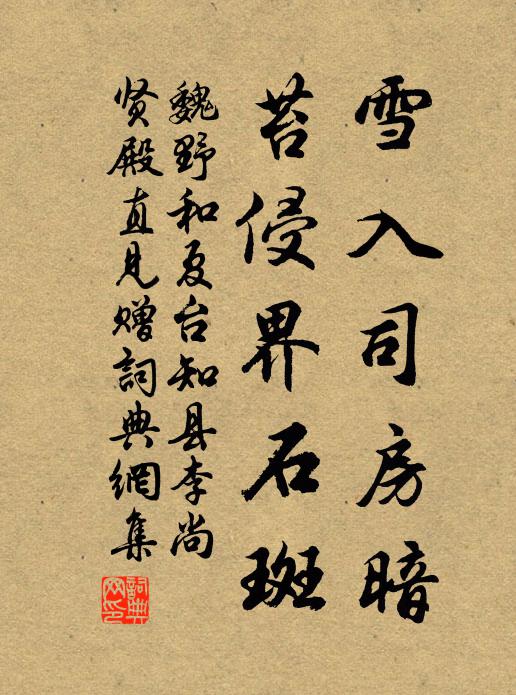 雪入司房暗
苔侵界石斑
魏野和夏台知县李尚
贤殿直见赠詞典網集
詞典網印